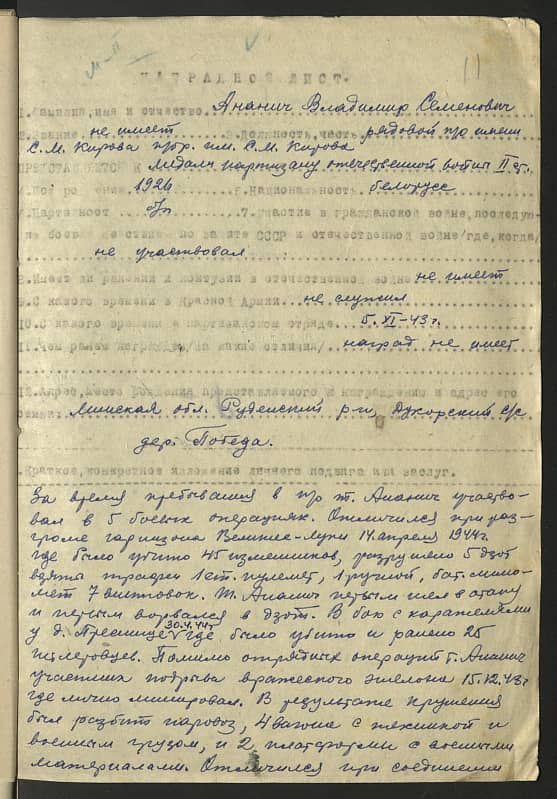 11
НАГРАДНОЙ ЛИСТ.
1. Фамилия, имя и отчество Ананич Владимир Семенович
2. Звание не имеет 3. Должность, часть рядовой п/о имени
С. М. Кирова п/бр. им. С. М. Кирова
ПРЕДСТАВЛЯЕТСЯ К медали партизану отечественной войны II ст.
4. Год рождения 1926 5. Национальность белорусс
6. Партийность б/п 7. участие в гражданской войне, последую-
щих боевых действиях по защите СССР и отечественной войне /где, когда/
не участвовал
8. Имеет ли ранения и контузии в отечественной войне не имеет
9. С какого времени в Красной Армии не служил
10. С какого времени в партизанском отряде 5. XI-43 г.
11. Чем ранее награжден /за какие отличия/ наград не имеет
12. Адрес, место рождения представляемого к награждению и адрес его
семьи: Минская обл. Руденский р-н, Дукорский с/с
дер. Победа.
Краткое, конкретное изложение личного подвига или заслуг.
За время пребывания в п/о т. Ананич участво-
вал в 5 боевых операциях. Отличился при раз-
громе гарнизона Великие-Луки 14 апреля 1944 г.
где было убито 45 изменников, разрушено 5 дзот
взяты трофеи 1 ст. пулемет, 1 ручной, бат. мино-
мет 7 винтовок. Т. Ананич первым шел в атаку
и первым ворвался в дзот. В бою с карателями
30.4.44 г.
у д. где было убито и ранено 25
гитлеровцев. Помимо отрядных операций т. Ананич
участник подрыва вражеского эшелона 15.12.43 г.
где лично минировал. В результате крушения
был разбит паровоз, 4 вагона с техникой и
военным грузом, и 2 платформы с военными
материалами. Отличился при соединении